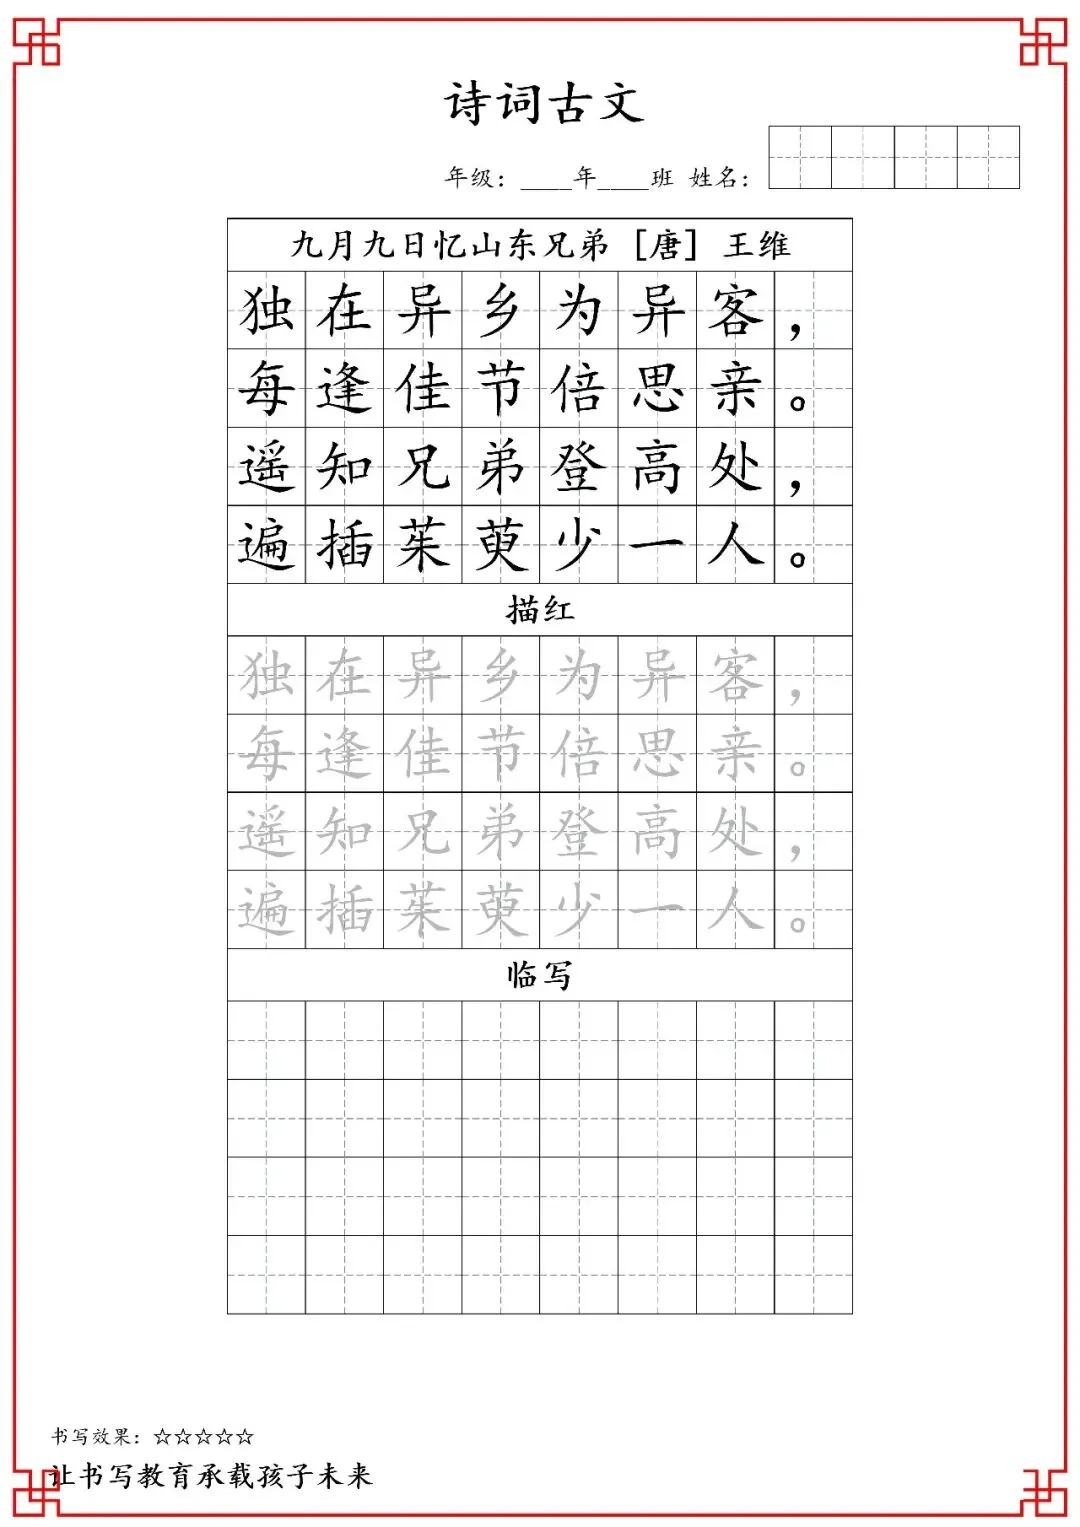 诗词古文
年级：____年____班 姓名：
九月九日忆山东兄弟［唐］ 王维
独在异乡为异客，
每逢佳节倍思亲。
遥知兄弟登高处，
遍插茱萸少一人。
描红
独在异乡为异客，
每逢佳节倍思亲。
遥知兄弟登高处，
遍插茱萸少一人。
临写
书写效果：☆☆☆☆☆
让书写教育承载孩子未来